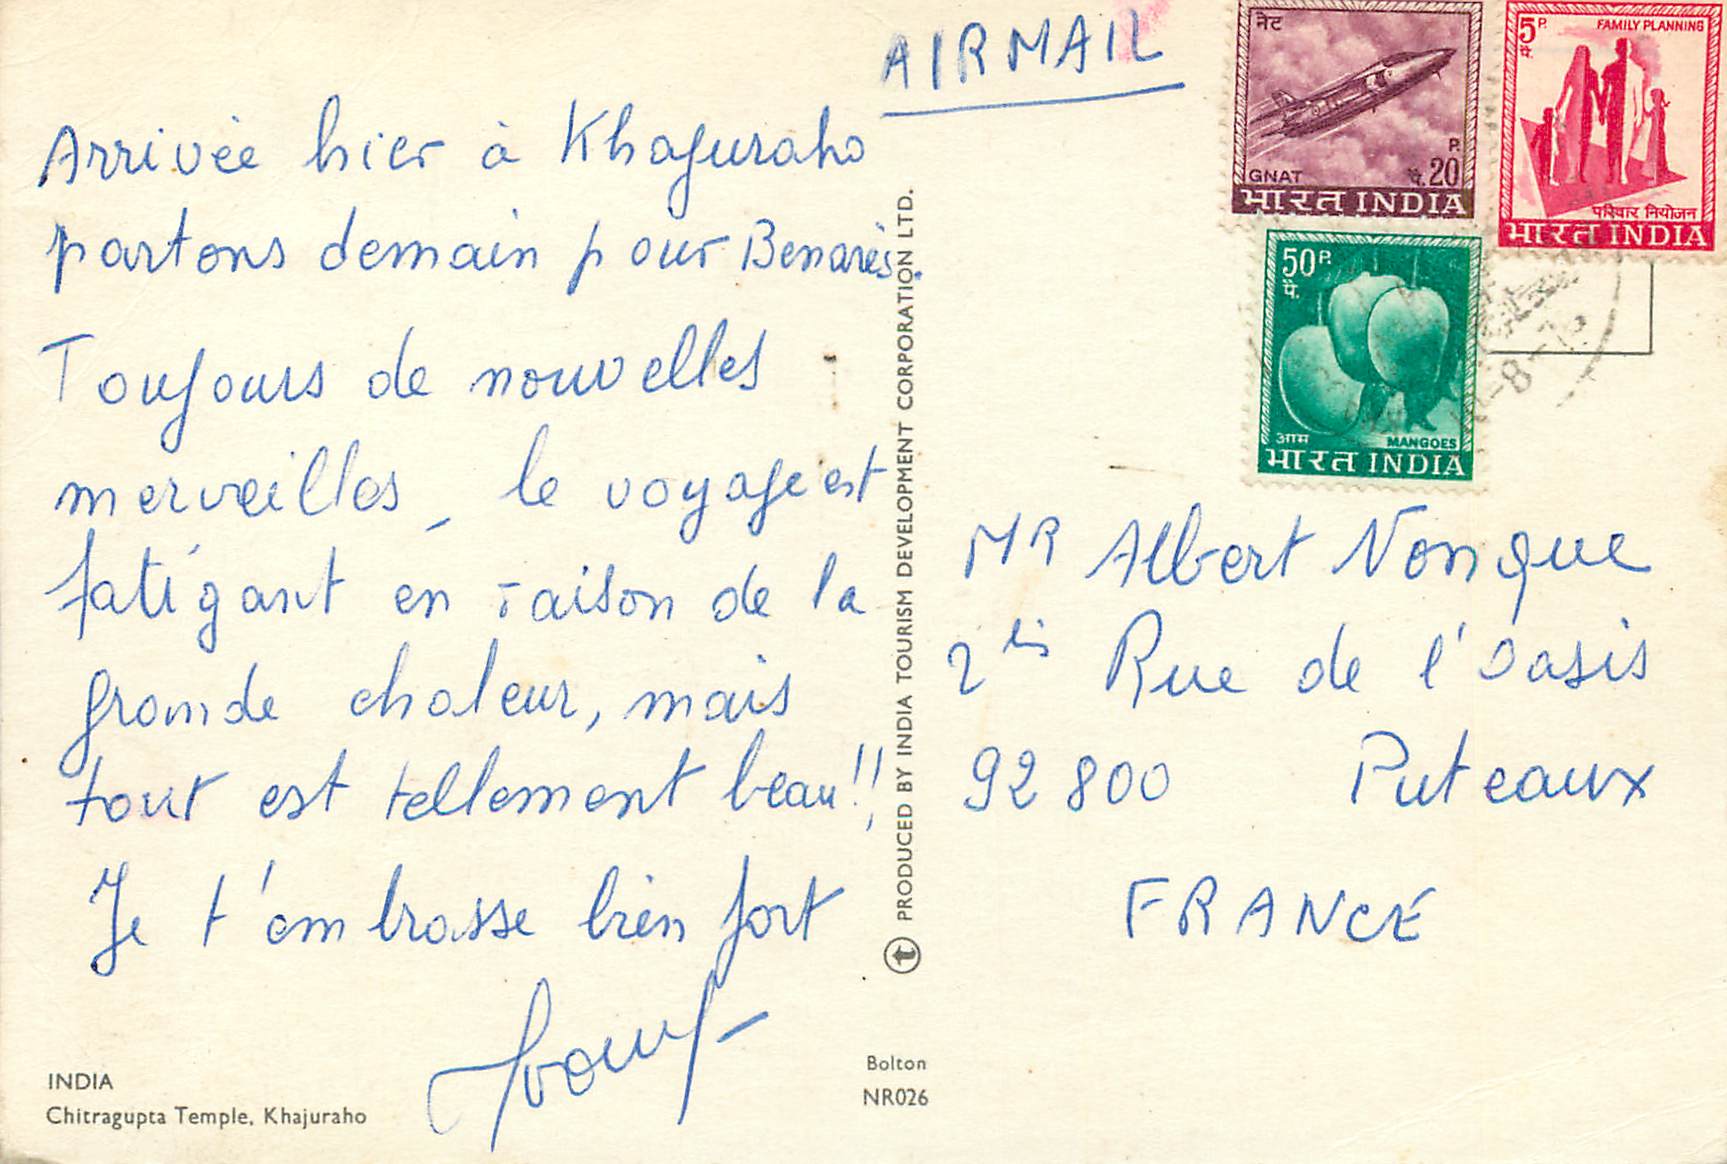 AIRMAIL
Arrivée hier à Khajuraho
partons demain pour Benarès.
Toujours de nouvelles
merveilles, le voyage est
fatigant en raison de la
grande chaleur, mais
tout est tellement beau!!
Je t'embrasse bien fort
INDIA
Chitragupta Temple, Khajuraho
PRODUCED BY INDIA TOURISM DEVELOPMENT CORPORATION LTD.
Bolton
NR026
नेट
GNAT
P.
पै. 20
भारत INDIA
5 P.
पै.
FAMILY PLANNING
परिवार नियोजन
भारत INDIA
50 P.
पै.
आम MANGOES
भारत INDIA
MR Albert Nonque
2 bis Rue de l'Oasis
92 800 Puteaux
FRANCE